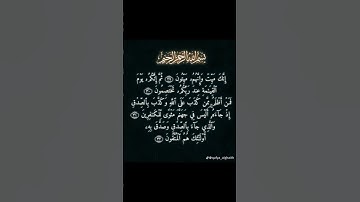 بسم الله الرحمن الرحيم
إِنَّكَ مَيِّتٌ وَإِنَّهُم مَّيِّتُونَ ٣٠ ثُمَّ إِنَّكُمْ يَوْمَ
ٱلْقِيَٰمَةِ عِندَ رَبِّكُمْ تَخْتَصِمُونَ ٣١
فَمَنْ أَظْلَمُ مِمَّن كَذَبَ عَلَى ٱللَّهِ وَكَذَّبَ بِٱلصِّدْقِ
إِذْ جَآءَهُۥٓ أَلَيْسَ فِى جَهَنَّمَ مَثْوًى لِّلْكَٰفِرِينَ ٣٢
وَٱلَّذِى جَآءَ بِٱلصِّدْقِ وَصَدَّقَ بِهِۦٓ
أُو۟لَٰٓئِكَ هُمُ ٱلْمُتَّقُونَ ٣٣